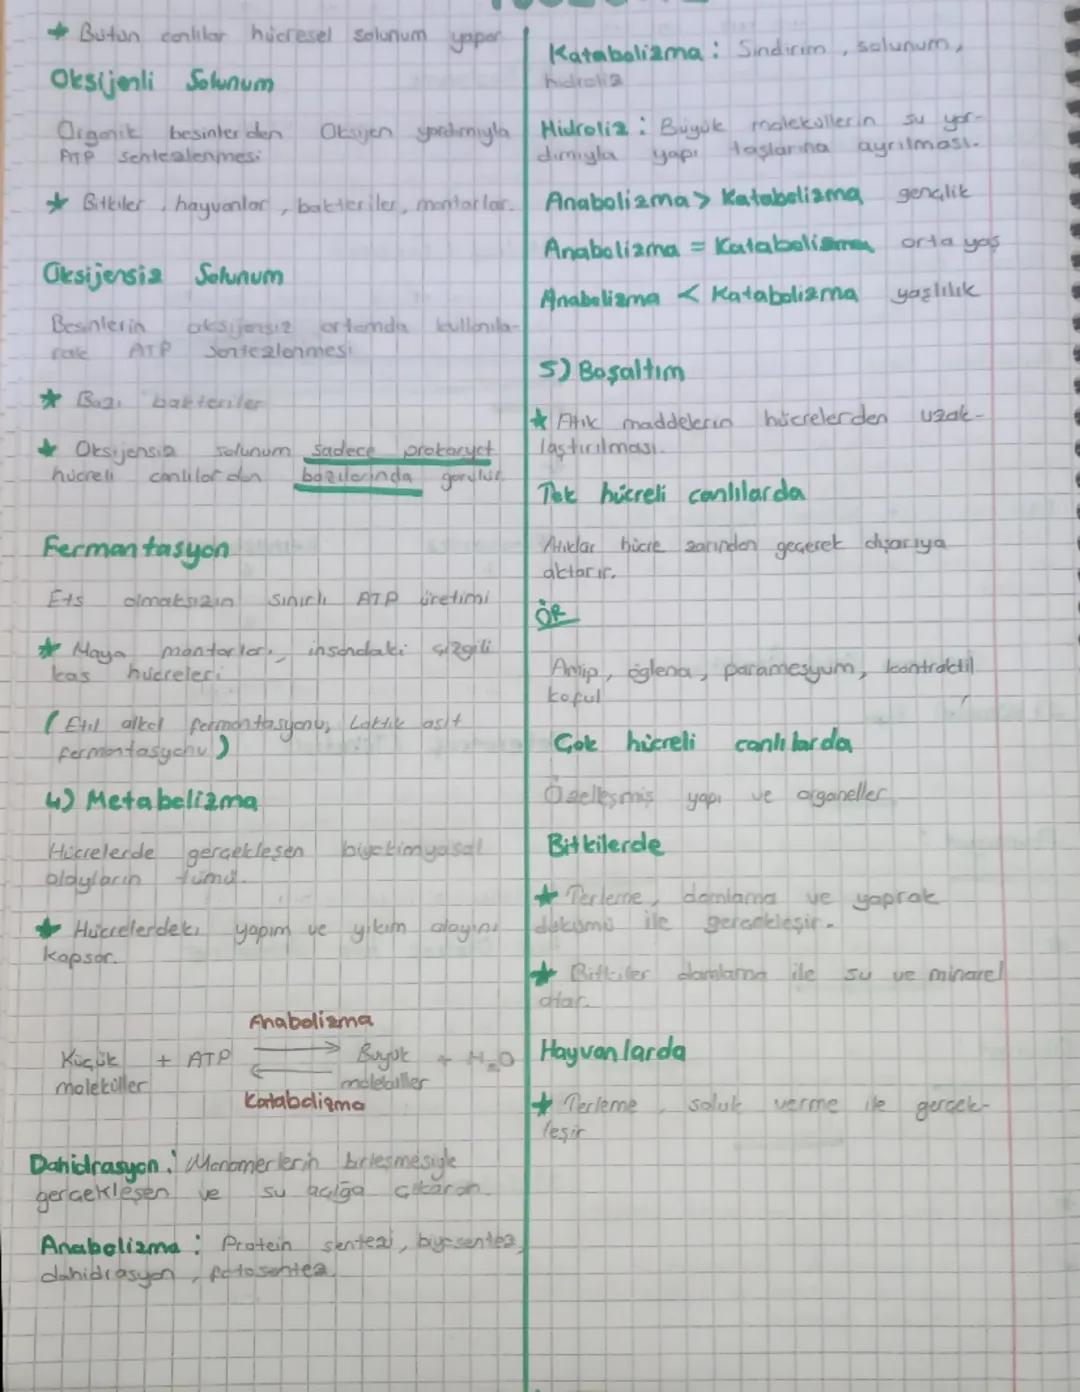 ★ Bütün canlılar hücresel solunum yapar
Oksijenli Solunum
Organik besinlerden Oksijen yardımıyla
ATP sentezlenmesi
★ Bitkiler, hayvanlar, bakteriler, mantarlar.
Oksijensiz Solunum
Besinlerin oksijensiz ortamda kullanıla-
rak ATP sentezlenmesi
★ Bazı bakteriler
★ Oksijensiz solunum sadece prokaryot
hücreli canlılardan bazılarında görülür.
Fermantasyon
Ets olmaksızın sınırlı ATP üretimi
★ Maya mantarları, insandaki çizgili
kas hücreleri
(Etil alkol fermantasyonu, Laktik asit
fermantasyonu)
4) Metabolizma
Hücrelerde gerçekleşen biyokimyasal
olayların tümü.
★ Hücrelerdeki yapım ve yıkım olayını
kapsar.
Anabolizma
Küçük + ATP ⇄ Büyük + H₂O
moleküller moleküller
Katabolizma
Dahidrasyon: Monomerlerin birleşmesiyle
gerçekleşen ve su açığa çıkaran.
Anabolizma: Protein sentezi, biyosentez,
dahidrasyon, fotosentez
Katabolizma: Sindirim, solunum,
hidroliz
Hidroliz: Büyük moleküllerin su yar-
dımıyla yapı taşlarına ayrılması.
Anabolizma > Katabolizma gençlik
Anabolizma = Katabolizma orta yaş
Anabolizma < Katabolizma yaşlılık
5) Boşaltım
★ Atık maddelerin hücrelerden uzak-
laştırılması.
Tek hücreli canlılarda
Atıklar hücre zarından geçerek dışarıya
aktarır.
ÖR
Amip, öglena, paramesyum, kontraktil
koful
Çok hücreli canlılarda
Özelleşmiş yapı ve organeller
Bitkilerde
★ Terleme, damlama ve yaprak
dökümü ile gerçekleşir.
★ Bitkiler damlama ile su ve minarel
atar.
Hayvanlarda
★ Terleme, soluk verme ile gerçek-
leşir